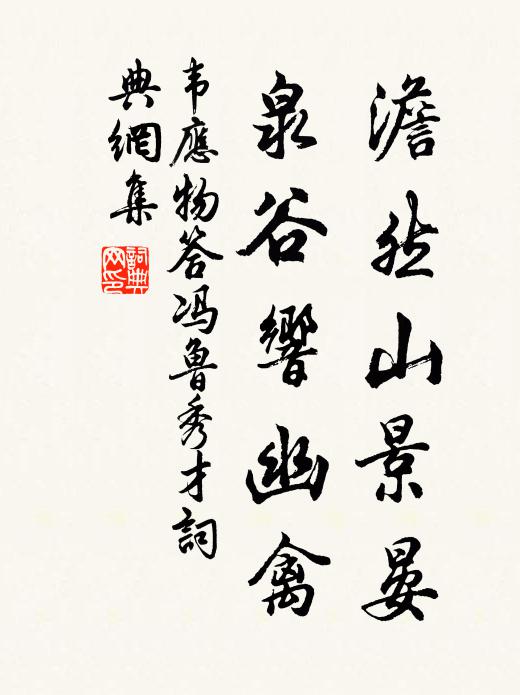 澹然山景晏
泉谷響幽禽
韦應物答冯魯秀才詞
典網集
詞典
网印